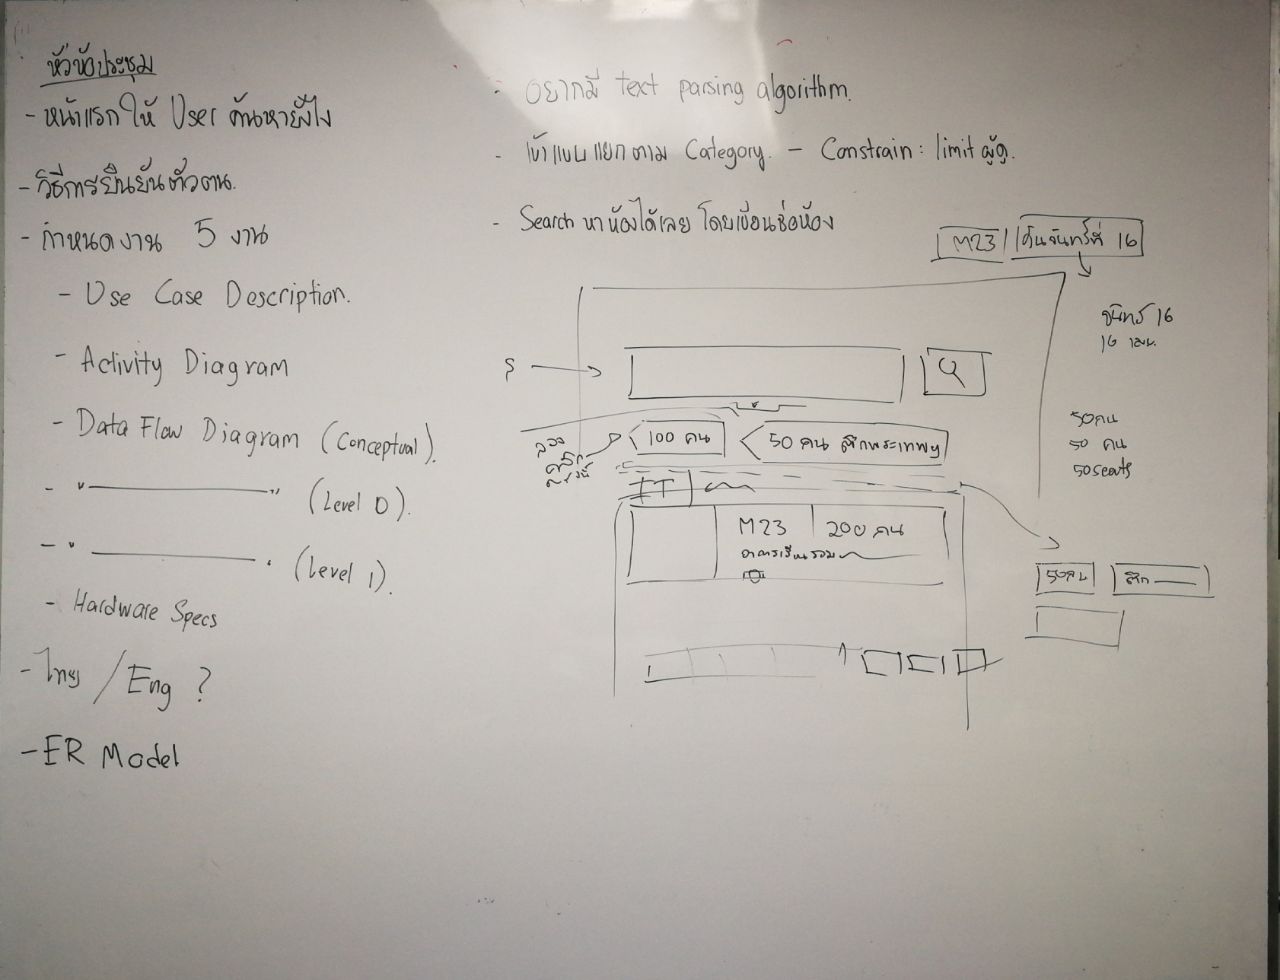 หัวข้อประชุม
- หน้าแรกให้ User ค้นหายังไง
- วิธีการยืนยันตัวตน.
- กำหนดงาน 5 งาน
- Use Case Description.
- Activity Diagram
- Data Flow Diagram (Conceptual).
- " ———— " (Level 0).
- " ———— " (Level 1).
- Hardware Specs
- ไทย / Eng ?
- ER Model
- อยากมี text parsing algorithm.
- เข้าแบบแยกตาม Category. - Constrain: limit
- Search หาห้องได้เลย โดยเขียนชื่อห้อง
M23 คืนจันทร์ที่ 16
จันทร์ 16
16 เมษ.
100 คน
50 คน ตึกพระเทพฯ
ลอง
คลิก
ตรงนี้
50 คน
50 คน
50 seats
IT
M23 200 คน
อาคารเรียนรวม
50 คน ตึก